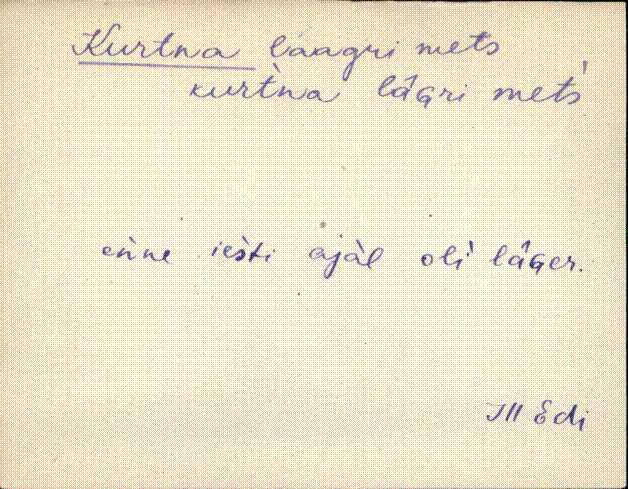 Kurtna laagri mets
kurt̀na lâGri met's
eǹne ies̀ti ajàl olì lâGer.
Jll Edi